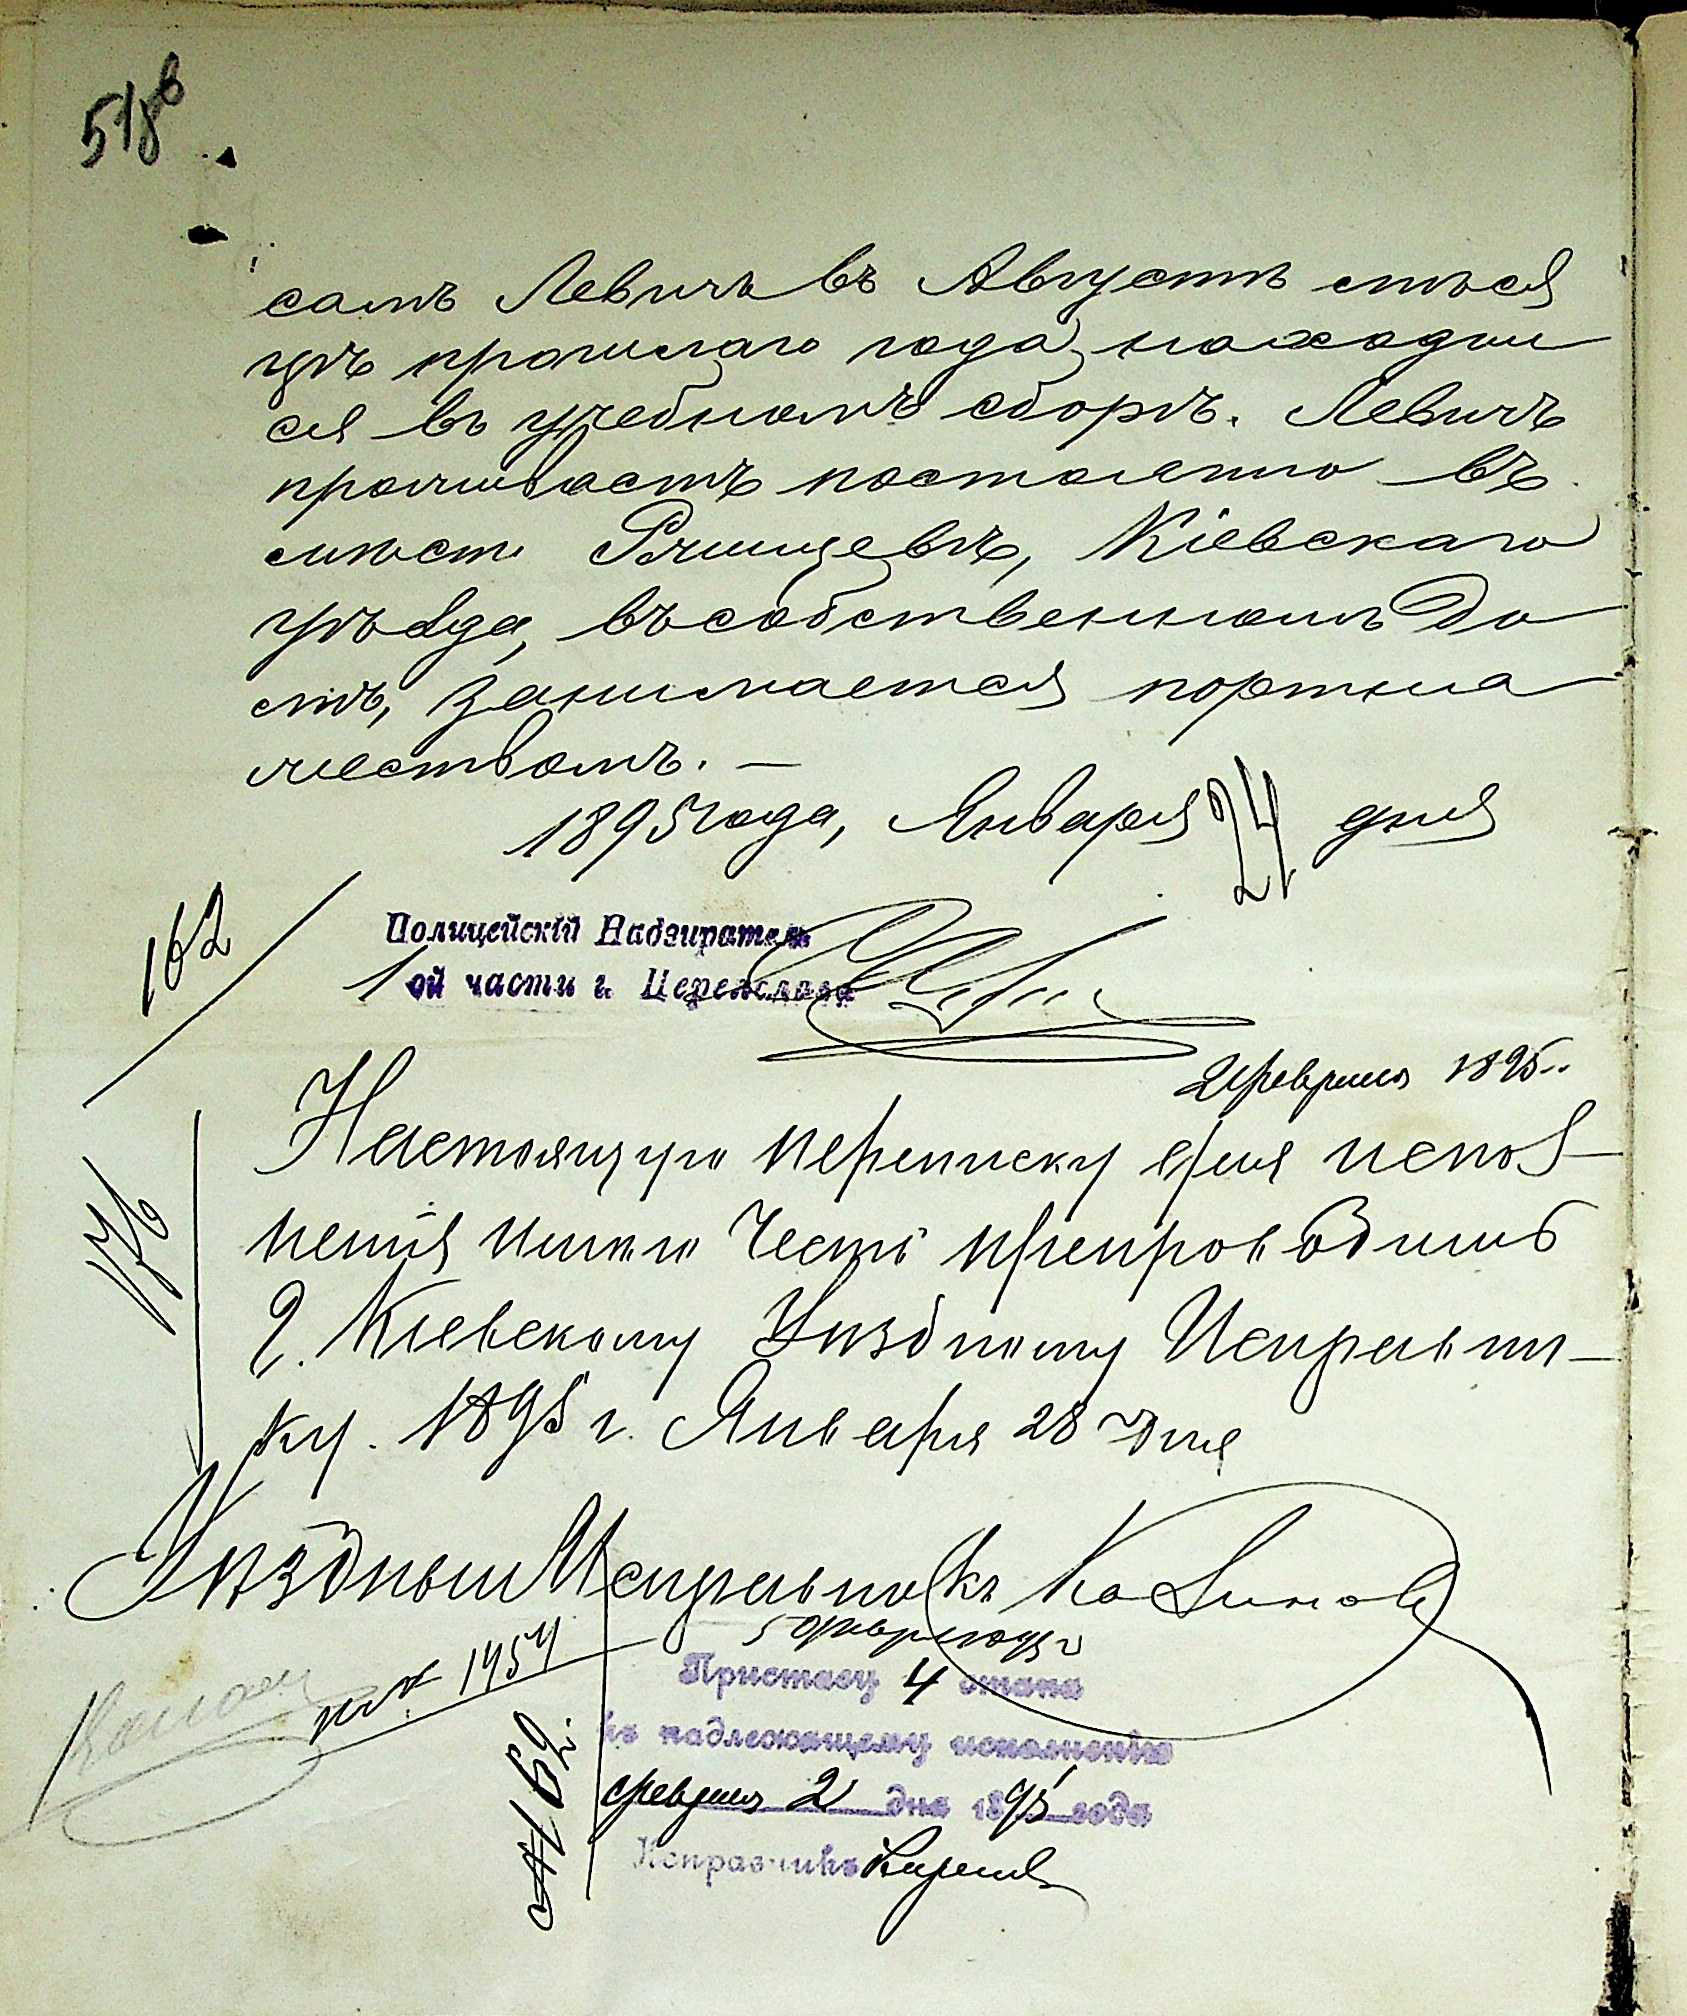 518 в
самъ Левичъ въ Августѣ мѣся
цѣ прошлаго года, находил
ся въ учебномъ сборѣ. Левичъ
проживаетъ постоянно въ
мѣст. Ржищевѣ, Кіевскаго
уѣзда, въ собственномъ до
мѣ, занимается портня
чествомъ. —
1895 года, Января 24 дня
162
Полицейскій Надзиратель
1 ой части г. Переяслава
2 февраля 1895
Настоящую переписку для испол-
ненія имѣю честь препроводить
Г. Кіевскому Уѣздному Исправни-
ку. 1895 г. Января 28 дня
176
Уѣздный Исправникъ
5 февр
1954
Приставу 4 стана
къ надлежащему исполненію
февраля 2 дня 1895 года
Исправникъ
№ 162.